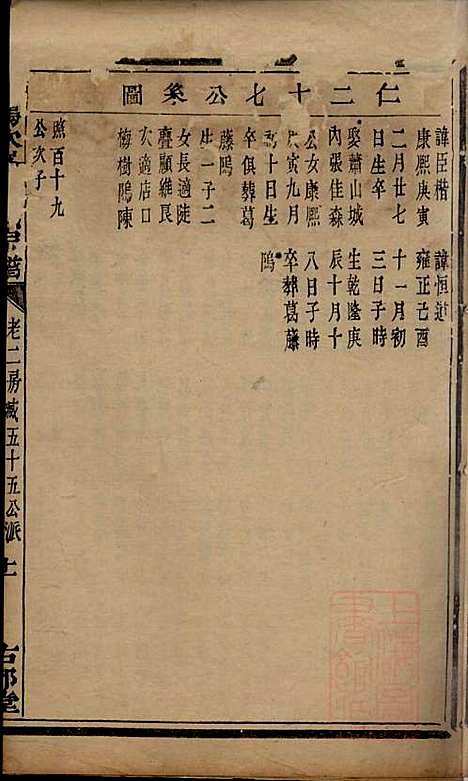 仁二十七公衆圖
諱臣楷
康熙庚寅
二月廿七
日生卒
娶蕭山城
内張佳森
公女康熙
寅九月
十日生
卒俱葬葛
藤隖
生一子二
女長適徒
疊顧維良
次適店口
梅樹隖陳
諱恒道
雍正己酉
十一月初
三日子時
生乾隆庚
辰十月十
八日子時
卒葬葛藤
隖
照百十九
公次子
老二房
五十五公派